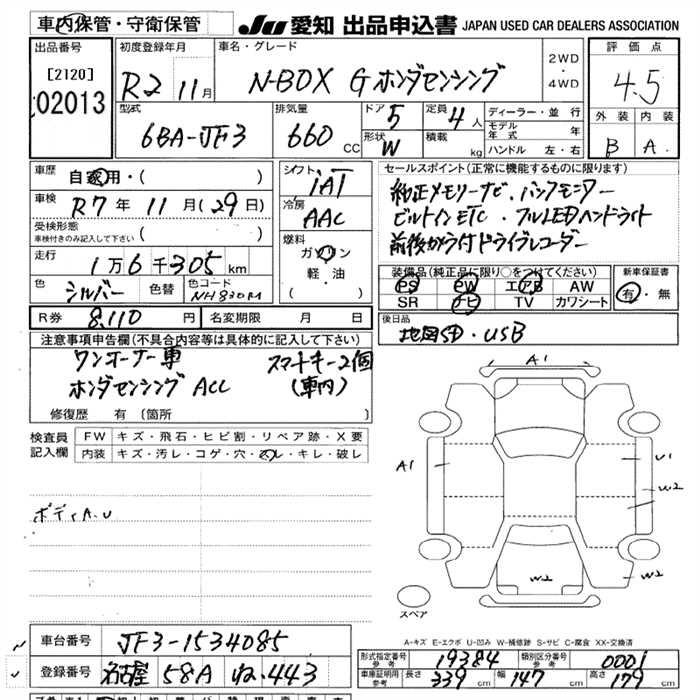 車内保管・守衛保管
JU 愛知 出品申込書 JAPAN USED CAR DEALERS ASSOCIATION
出品番号
[2120]
02013
初度登録年月
R2 11月
車名・グレード
N-BOX G ホンダセンシング
2WD
・
4WD
評価点
4.5
外装 内装
B A
型式
6BA-JF3
排気量
660 CC
ドア 5
形状 W
定員 4 人
積載 kg
ディーラー・並行
モデル年式 年
ハンドル 左・右
車歴
自家用・( )
車検
R7年 11月(29日)
受検形態
車検付きのみ記入して下さい ( )
走行
1万6千305km
色 シルバー 色替 色コード NH830M
シフト
iAT
冷房
AAC
燃料
ガソリン
軽・油
( )
セールスポイント(正常に機能するものに限ります)
純正メモリーナビ・バックモニター
ビルトインETC・フルLEDヘッドライト
前後カメラ付ドライブレコーダー
装備品(純正品に限り○をつけてください)
PS PW エアB AW
SR ナビ TV カワシート
新車保証書
有・無
R券 8,110 円 名変期限 月 日
後日品
地図SD・USB
注意事項申告欄(不具合内容等は具体的に記入して下さい)
ワンオーナー車 スマートキー2個
ホンダセンシング ACC (車内)
修復歴 有 (箇所 )
検査員記入欄
FW キズ・飛石・ヒビ割・リペア跡・X要
内装 キズ・汚レ・コゲ・穴・スレ・キレ・破レ
ボディA.U
A1
A1
U1
W2
W2
W2
スペア
A-キズ E-エクボ U-凹み W-補修跡 S-サビ C-腐食 XX-交換済
車台番号 JF3-1534085
登録番号 名古屋 58A ね 443
形式指定番号 参考 19384 類別区分番号 参考 0001
車庫証明用 参考 長さ 339 cm 幅 147 cm 高さ 179 cm